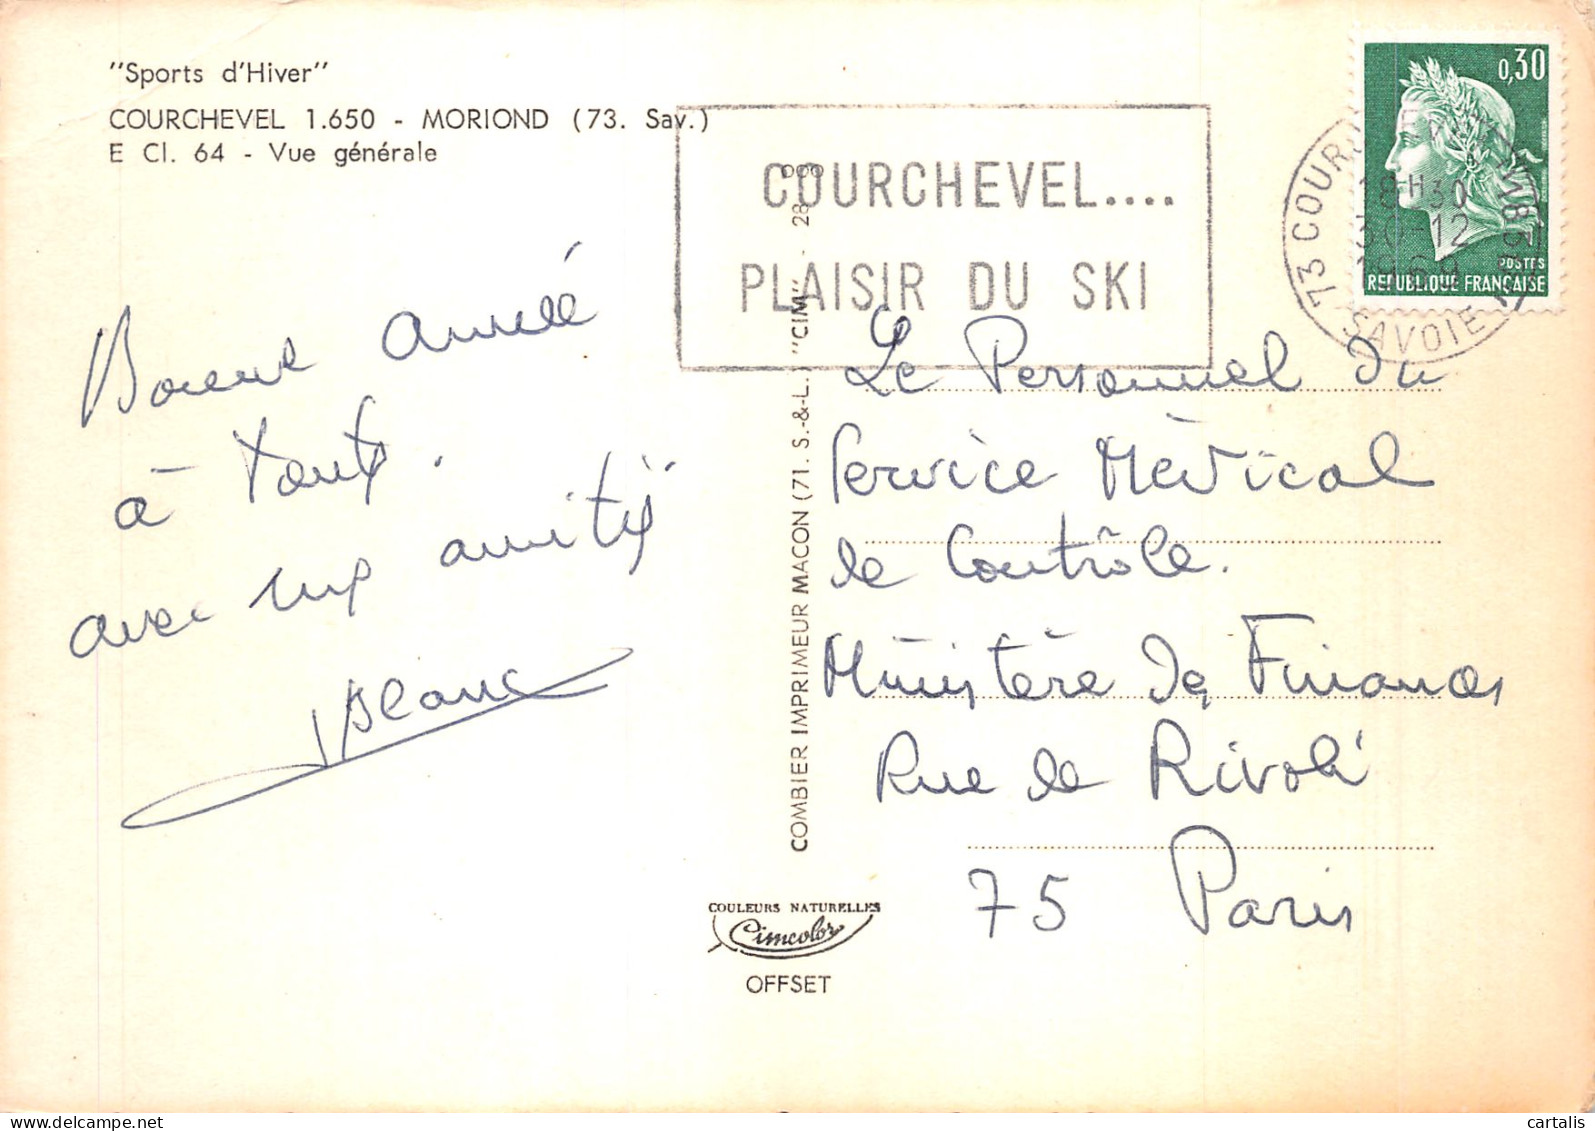 "Sports d'Hiver"
COURCHEVEL 1.650 - MORIOND (73. Sav.)
E Cl. 64 - Vue générale
Bonne année
à tous.
avec mes amitiés
Blanc
COURCHEVEL....
PLAISIR DU SKI
0,30
POSTES
REPUBLIQUE FRANÇAISE
18H30
30-12
73
SAVOIE
COMBIER IMPRIMEUR MACON (71. S.-&-L.) "CIM" - 28 000
Le Personnel du
Service Médical
de Contrôle.
Ministère des Finances
Rue de Rivoli
75 Paris
COULEURS NATURELLES
Cimcolor
OFFSET
cartalis
delcampe.net